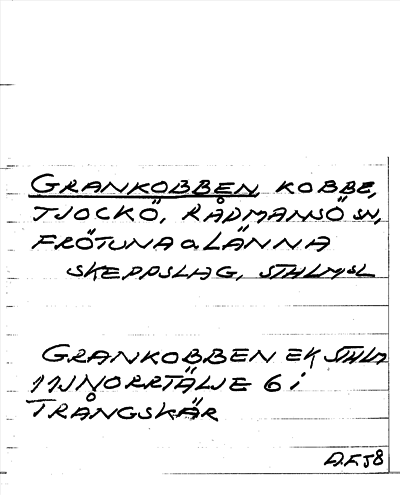 GRANKOBBEN, KOBBE,
TJOCKÖ, RÅDMANSÖ SN,
FRÖTUNA O LÄNNA
SKEPPSLAG, STHLMSL
GRANKOBBEN EK STHLM
11J NORRTÄLJE 6 i
TRÅNGSKÄR
A.F. 58